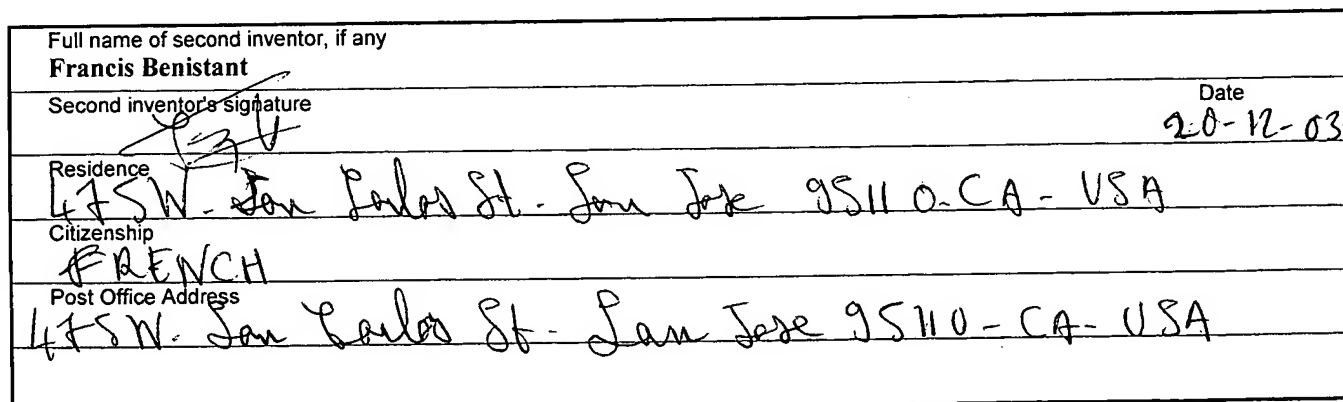 Full name of second inventor, if any
Francis Benistant
Second inventor's signature Date
20-12-03
Residence
475 W. San Carlos St. San Jose 95110-CA- USA
Citizenship
FRENCH
Post Office Address
475 W. San Carlos St- San Jose 95110-CA- USA